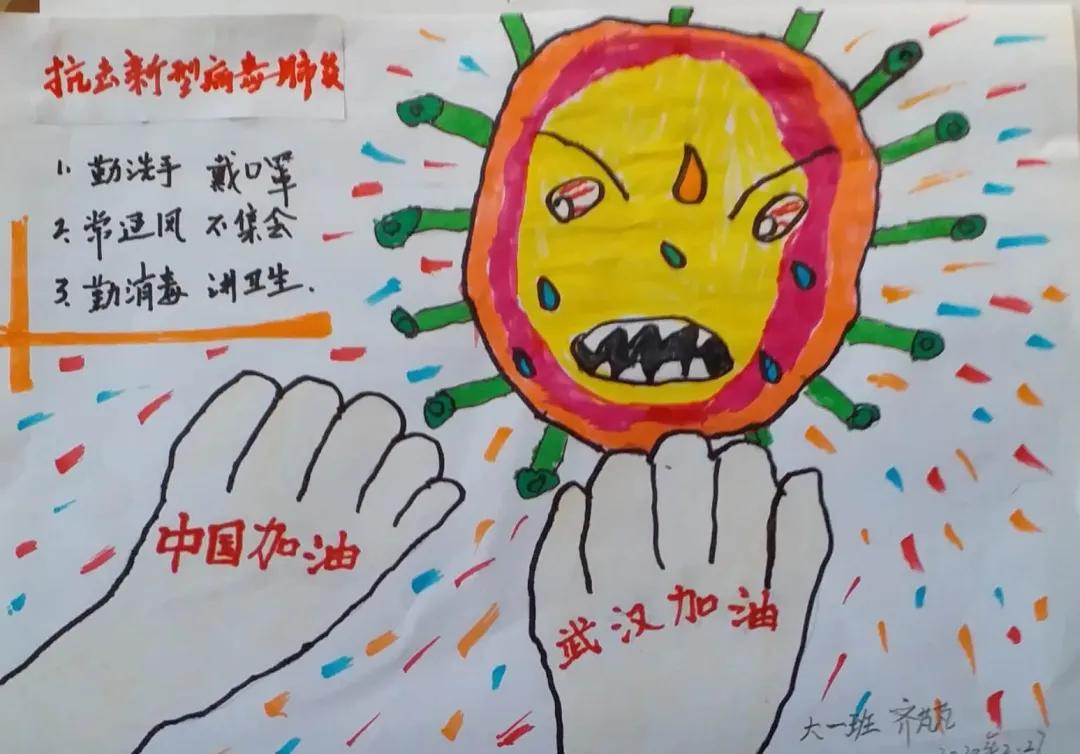 抗击新型病毒肺炎
1. 勤洗手 戴口罩
2. 常通风 不集会
3. 勤消毒 讲卫生.
中国加油
武汉加油
大一班 齐